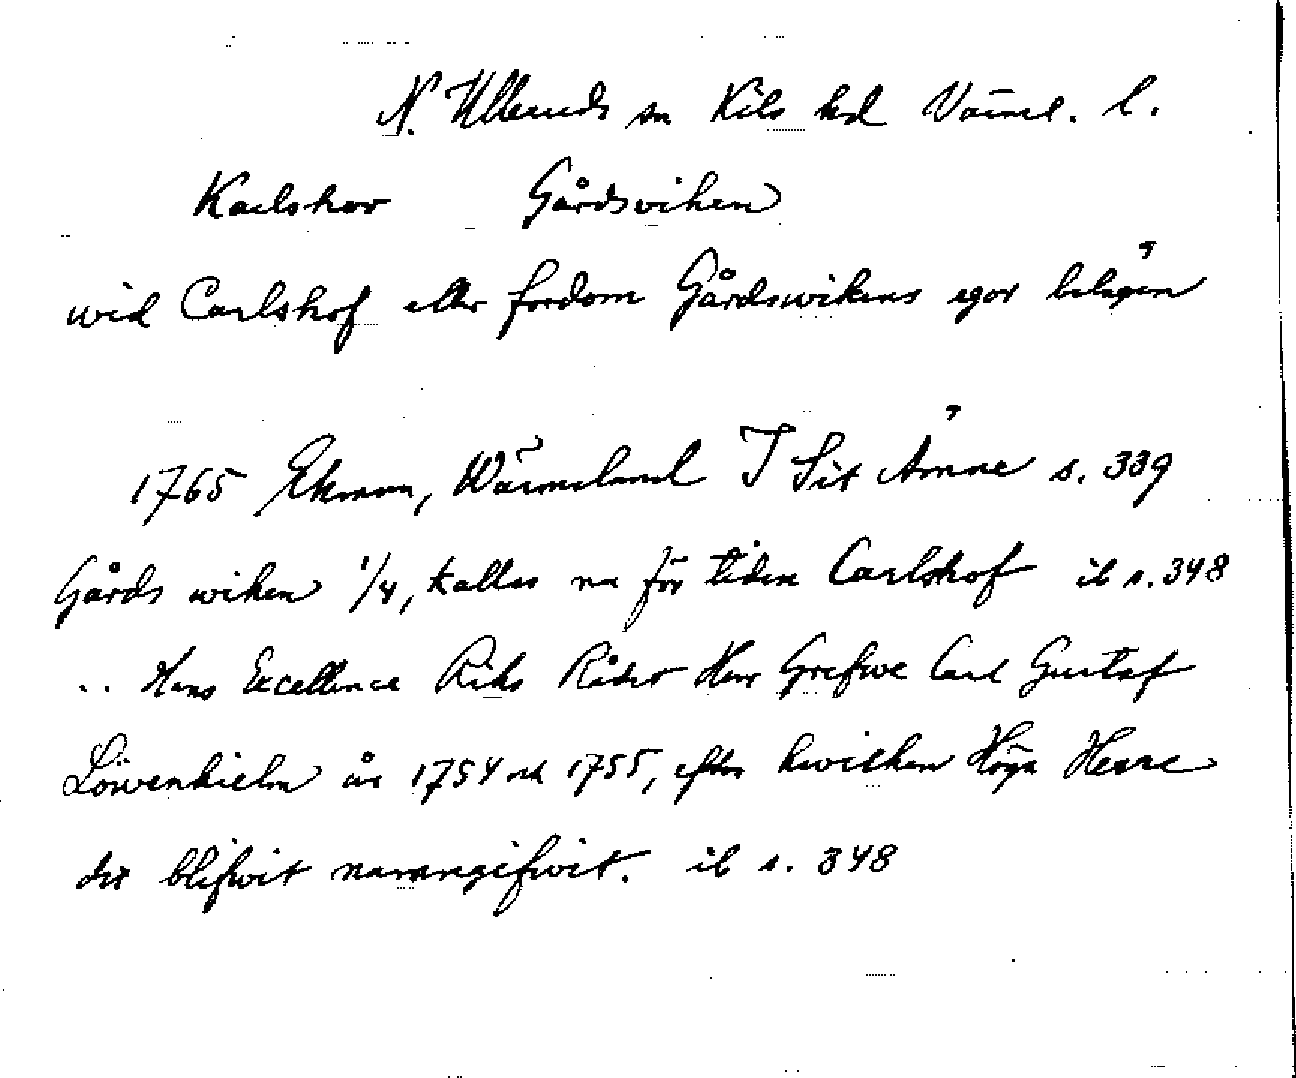 N. Ullerud sn Kils hd Värml. l.
Karlshov Gårdsviken
wid Carlshof eller fordom Gårdswikens egor belägen
1765 Ekman, Wärmeland I Sit Ämne s. 339
Gårds wiken 1/4, kallas nu för tiden Carlshof ib s. 348
.. Hans Excellence Riks Rådet Herr Grefwe Carl Gustaf
Löwenhielm år 1754 och 1755, efter hwilken Höga Herre
det blifwit namngifwit. ib s. 348